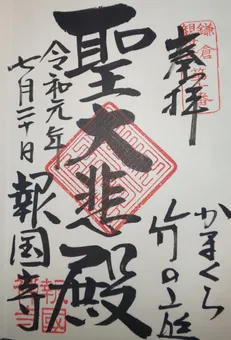 奉拝
かまくら
竹の庭
聖大悲殿
令和元年
七月二十日
報国寺